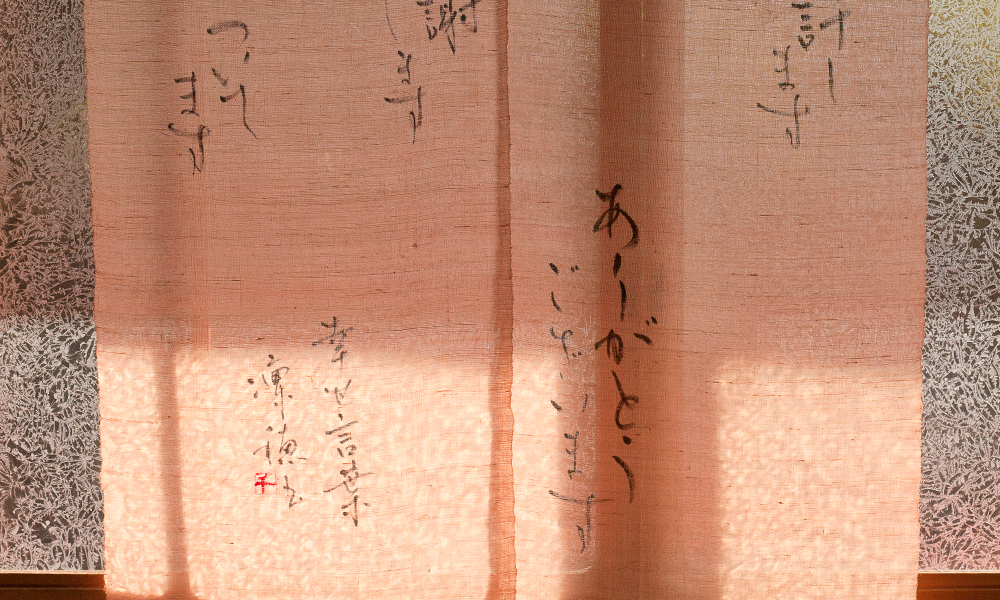 許し
ます
ありがとう
ございます
謝
ます
ついて
ます
幸せ言葉